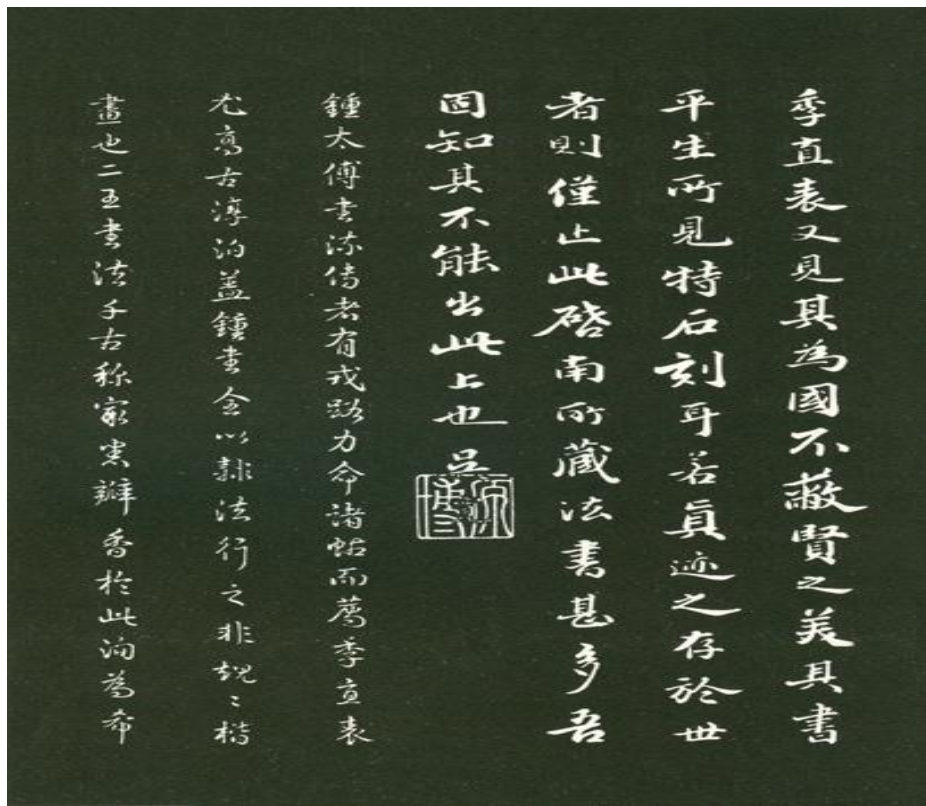 季直表又見其為國不蔽賢之美其書
平生所見特石刻耳若真迹之存於世
者則僅止此啓南所藏法書甚多吾
固知其不能出此上也
鍾太傅書流傳者有戎路力命諸帖而薦季直表
尤高古淳泊蓋鍾書全以隸法行之非規〻楷
畫也二王書法千古稱宗悉瓣香於此洵為希